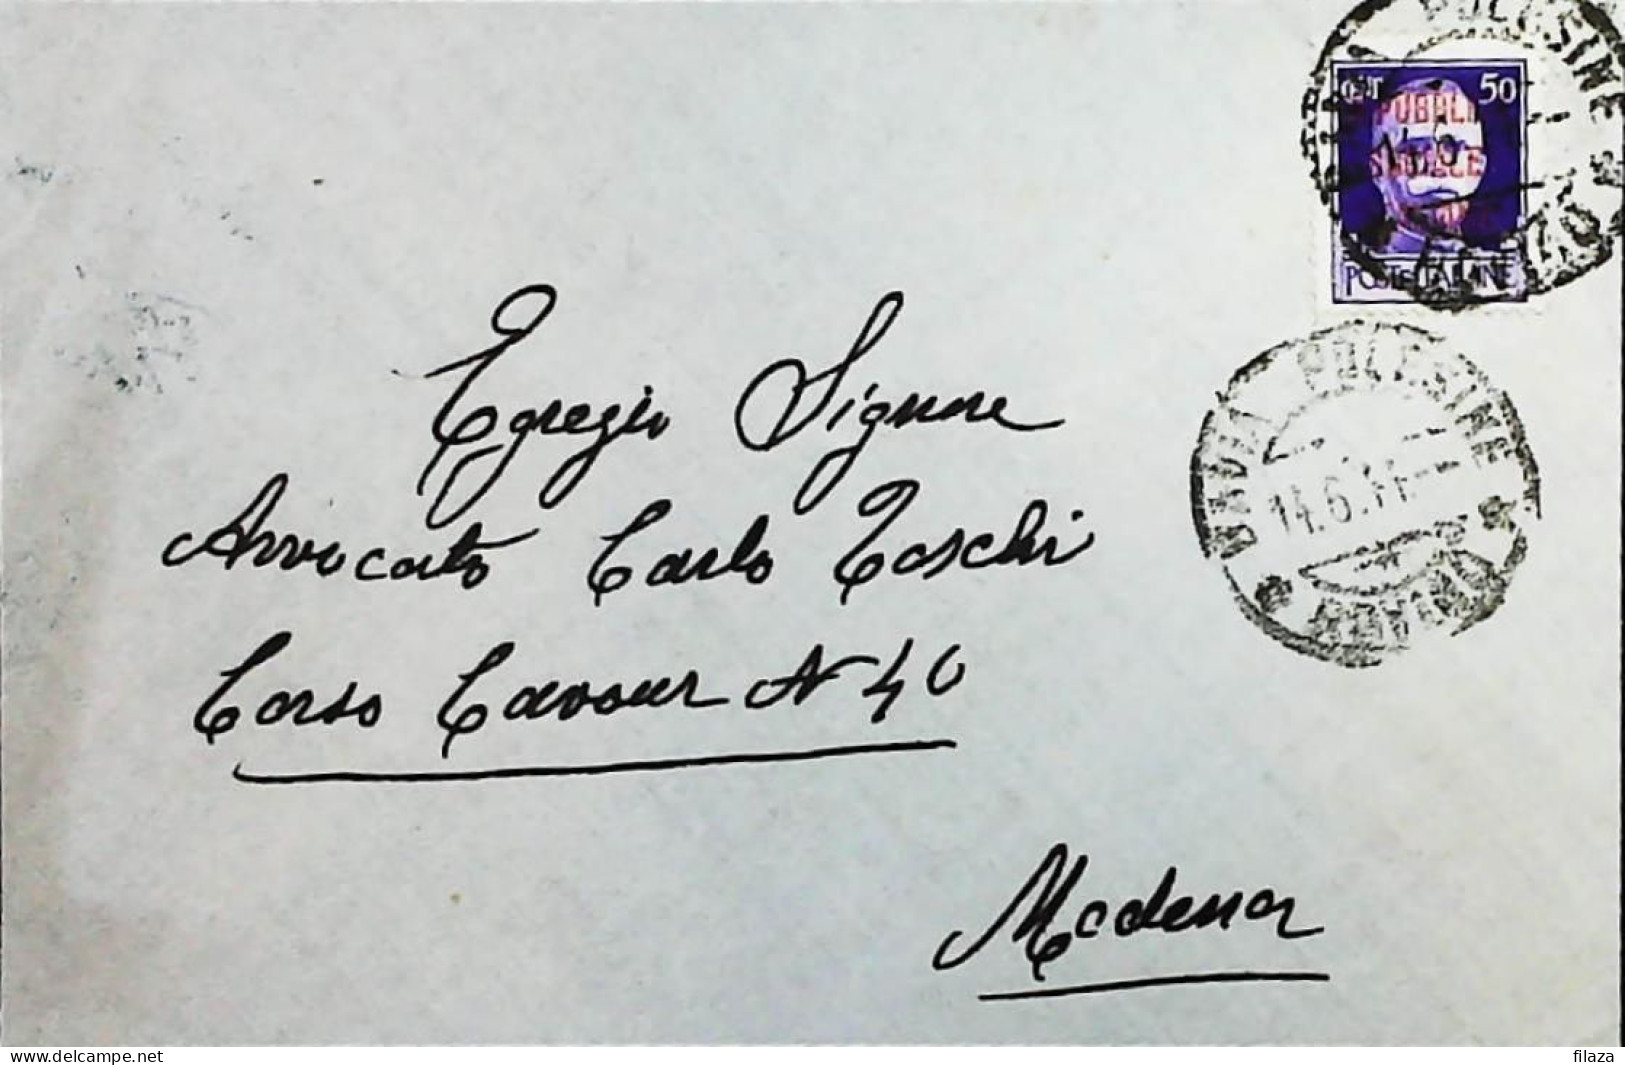 POLESINE
CENT 50
REPUBBLICA
SOCIALE
14.6
ROVIGO
POSTE ITALIANE
Egregio Signore
Avvocato Carlo Toschi
Corso Cavour N 40
Modena
POLESINE
14.6.44
ROVIGO
www.delcampe.net
filaza